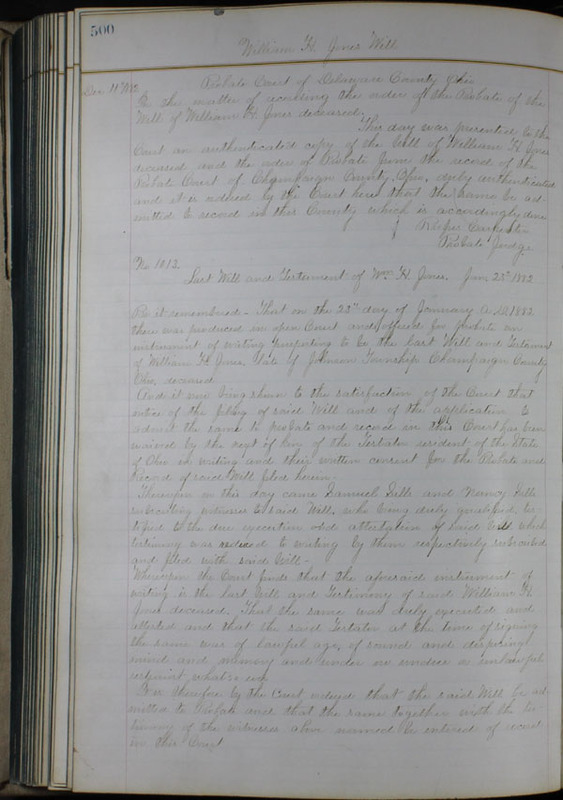 500
William H. Jones Will
Dec 11" 1882
Probate Court of Delaware County Ohio
In the matter of recording the order of the Probate of the
Will of William H Jones deceased.
This day was presented to the
Court an authenticated copy of the Will of William H Jones
deceased and the order of Probate from the record of the
Probate Court of Champaign County, Ohio, duly authenticated
and it is ordered by the Court here that the same be ad-
mitted to record in this County which is accordingly done
Probate Judge
No 1012
Last Will and Testament of Wm H. Jones. Jan. 23" 1882
Be it remembered - That on the 23" day of January A.D. 1882
there was produced in open Court and offered for probate an
instrument of writing purporting to be the last Will and Testament
of William H. Jones, late of Johnson Township Champaign County
Ohio, deceased
And it now being shown to the satisfaction of the Court that
notice of the filing of said Will and of the application to
admit the same to probate and record in this Court has been
waived by the next of kin of the Testator resident of the State
of Ohio in writing and their written consent for the Probate and
Record of said Will filed herein.
Thereupon on this day came Samuel and Nancy
subscribing witnesses to said Will, who being duly qualified, tes-
tified to the due execution and attestation of said Will which
testimony was reduced to writing by them respectively subscribed
and filed with said Will -
Whereupon the Court finds that the aforesaid instrument of
writing is the last Will and Testimony of said William H.
Jones deceased. That the same was duly executed and
attested and that the said Testator at the time of signing
the same was of lawful age, of sound and disposing
mind and memory and under no undue or unlawful
restraint whatsoever
It is therefore by the Court ordered that the said Will be ad
mitted to Probate and that the same together with the tes-
timony of the witnesses above named be entered of record
in this Court